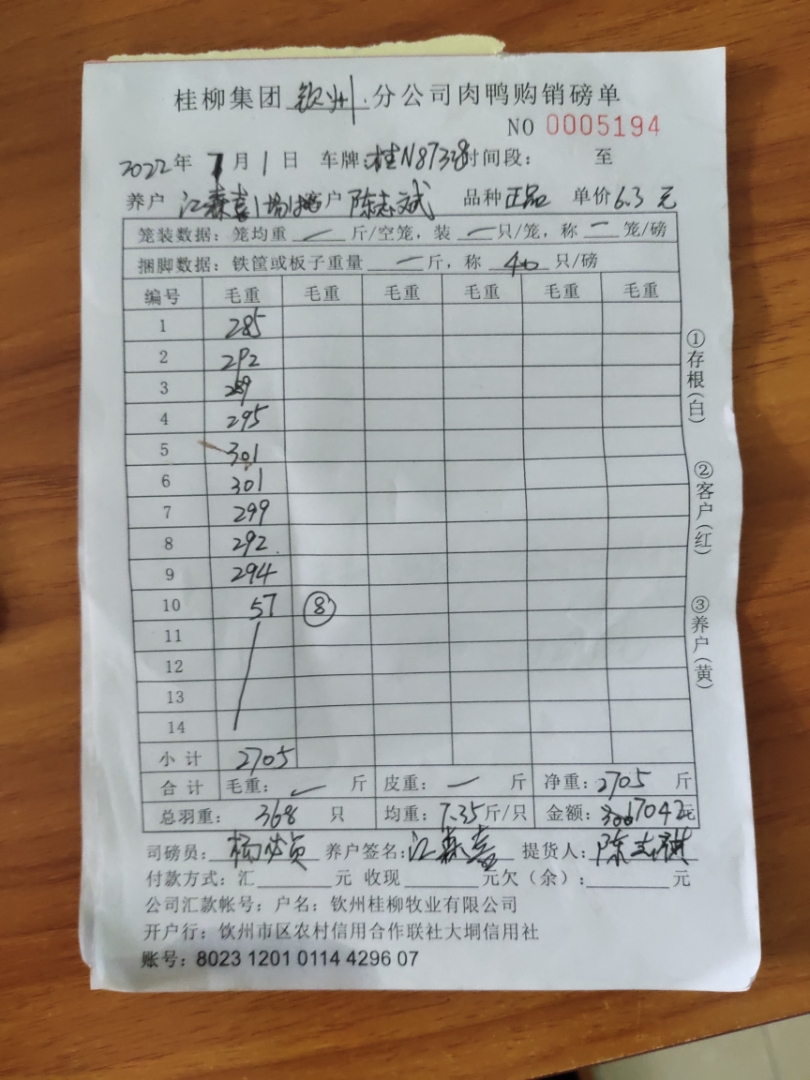 桂柳集团 钦州 分公司肉鸭购销磅单
NO 0005194
2022年 7月1日 车牌:桂N87328 时间段: 至
养户 江森喜1场 客户 陈志斌 品种 正品 单价 6.3 元
笼装数据: 笼均重 — 斤/空笼, 装 — 只/笼, 称 — 笼/磅
捆脚数据: 铁筐或板子重量 — 斤, 称 40 只/磅
编号 毛重 毛重 毛重 毛重 毛重 毛重
1 285
2 292
3 289
4 295
5 301
6 301
7 299
8 292
9 294
10 57 ⑧
11
12
13
14
小计 2705
合计 毛重: — 斤 皮重: — 斤 净重: 2705 斤
总羽重: 368 只 均重: 7.35斤/只 金额: 17042元
司磅员: 养户签名: 江森喜 提货人: 陈志斌
付款方式: 汇 元 收现 元欠(余): 元
公司汇款帐号: 户名: 钦州桂柳牧业有限公司
开户行: 钦州市区农村信用合作联社大垌信用社
账号: 8023 1201 0114 4296 07
①存根(白)
②客户(红)
③养户(黄)